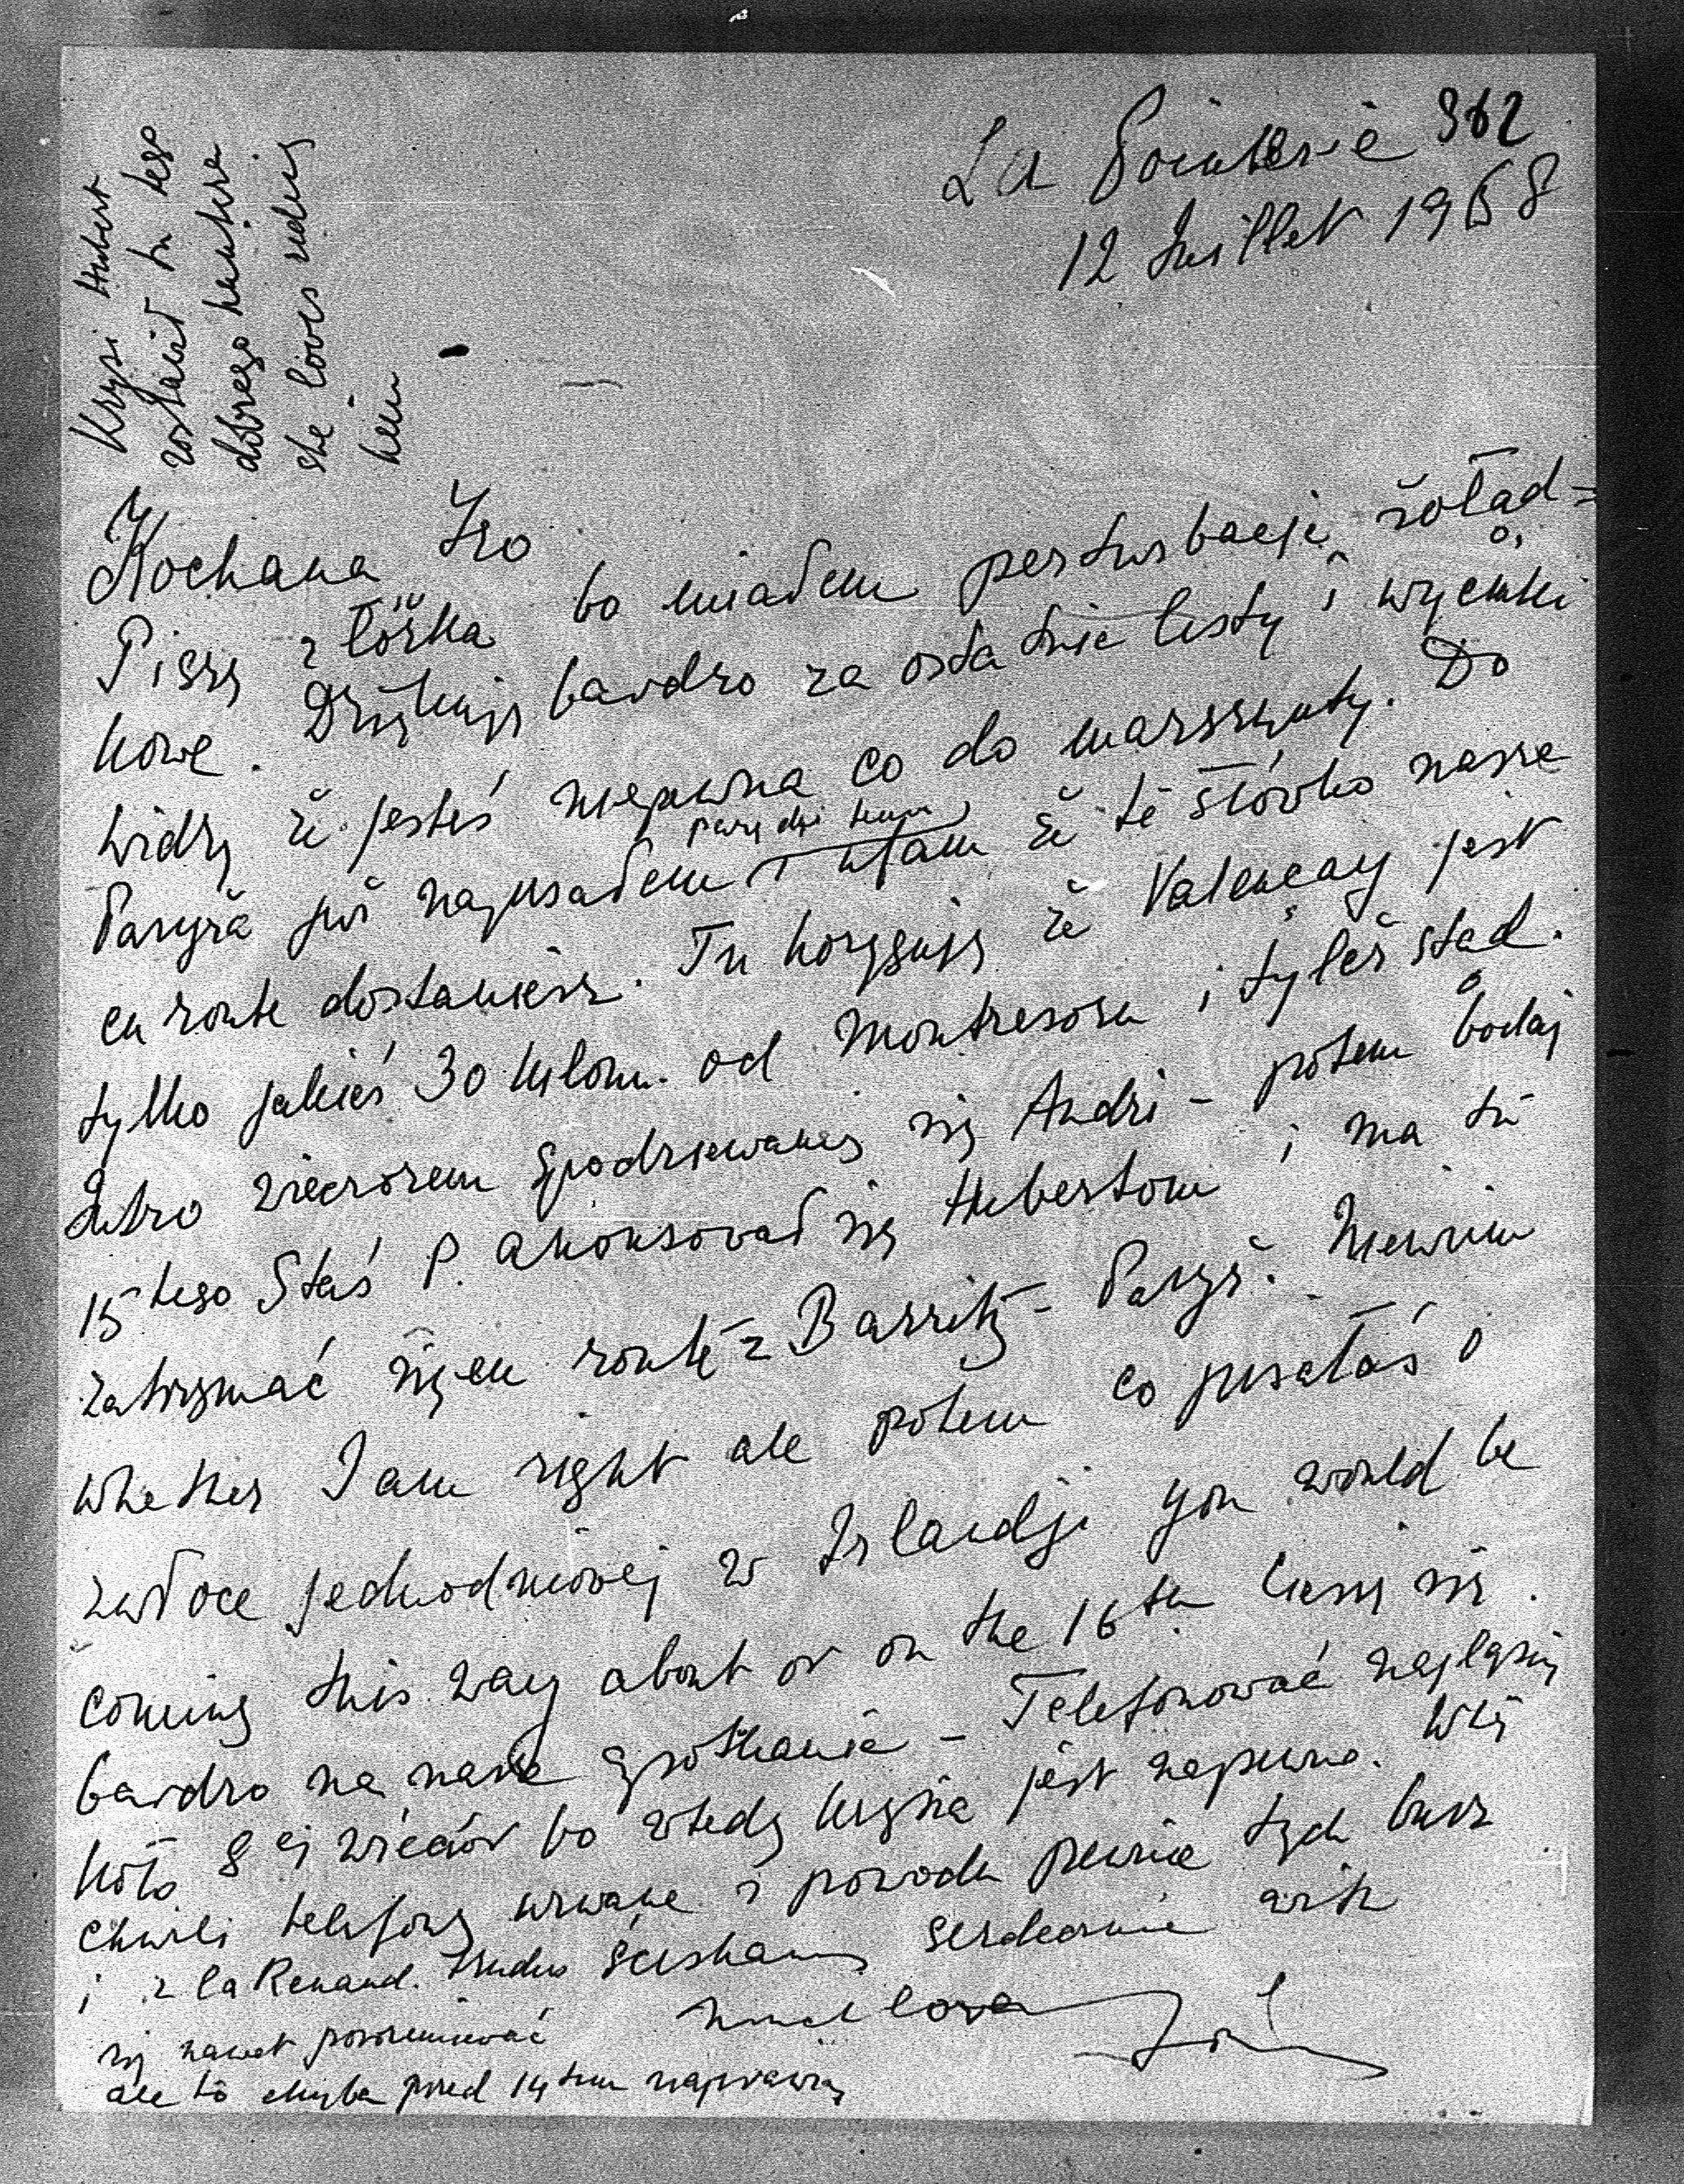 362
La Pointerie
12 Juillet 1968
Krysi Hubert
zostawił tu tego
dobrego
she loves riding
him
Kochana Izo
Piszę z łóżka bo miałem perturbacje żołąd=
kowe. Dziękuję bardzo za ostatnie listy i wycinki
widzę że jesteś niepewna co do marszruty. Do
Paryża już napisałem parę dni temu i ufam że te słówko nasze
en route dostaniesz. Tu koryguję że Valençay jest
tylko jakieś 30 kilom. od Montresoru i tyleż stąd.
Jutro wieczorem spodziewamy się Andzi - potem bodaj
15tego Staś P. anonsował się Hubertom i ma tu
zatrzymać się en route z Biarritz - Paryż. Niewiem
whether I am right ale potem co pisałaś o
zwłoce jednodniowej w Irlandji you would be
coming this way about or on the 16th. Cieszę się
bardzo na nasze spotkanie - Telefonować najlepiej
koło 8ej wieczór bo wtedy Krysia jest napewno. W tej
chwili telefony urwane z powodu pewnie tych burz
i z la Renaud. trudno ściskamy serdecznie with
się nawet porozumiewać much love
ale to chyba przed 14tem naprawią